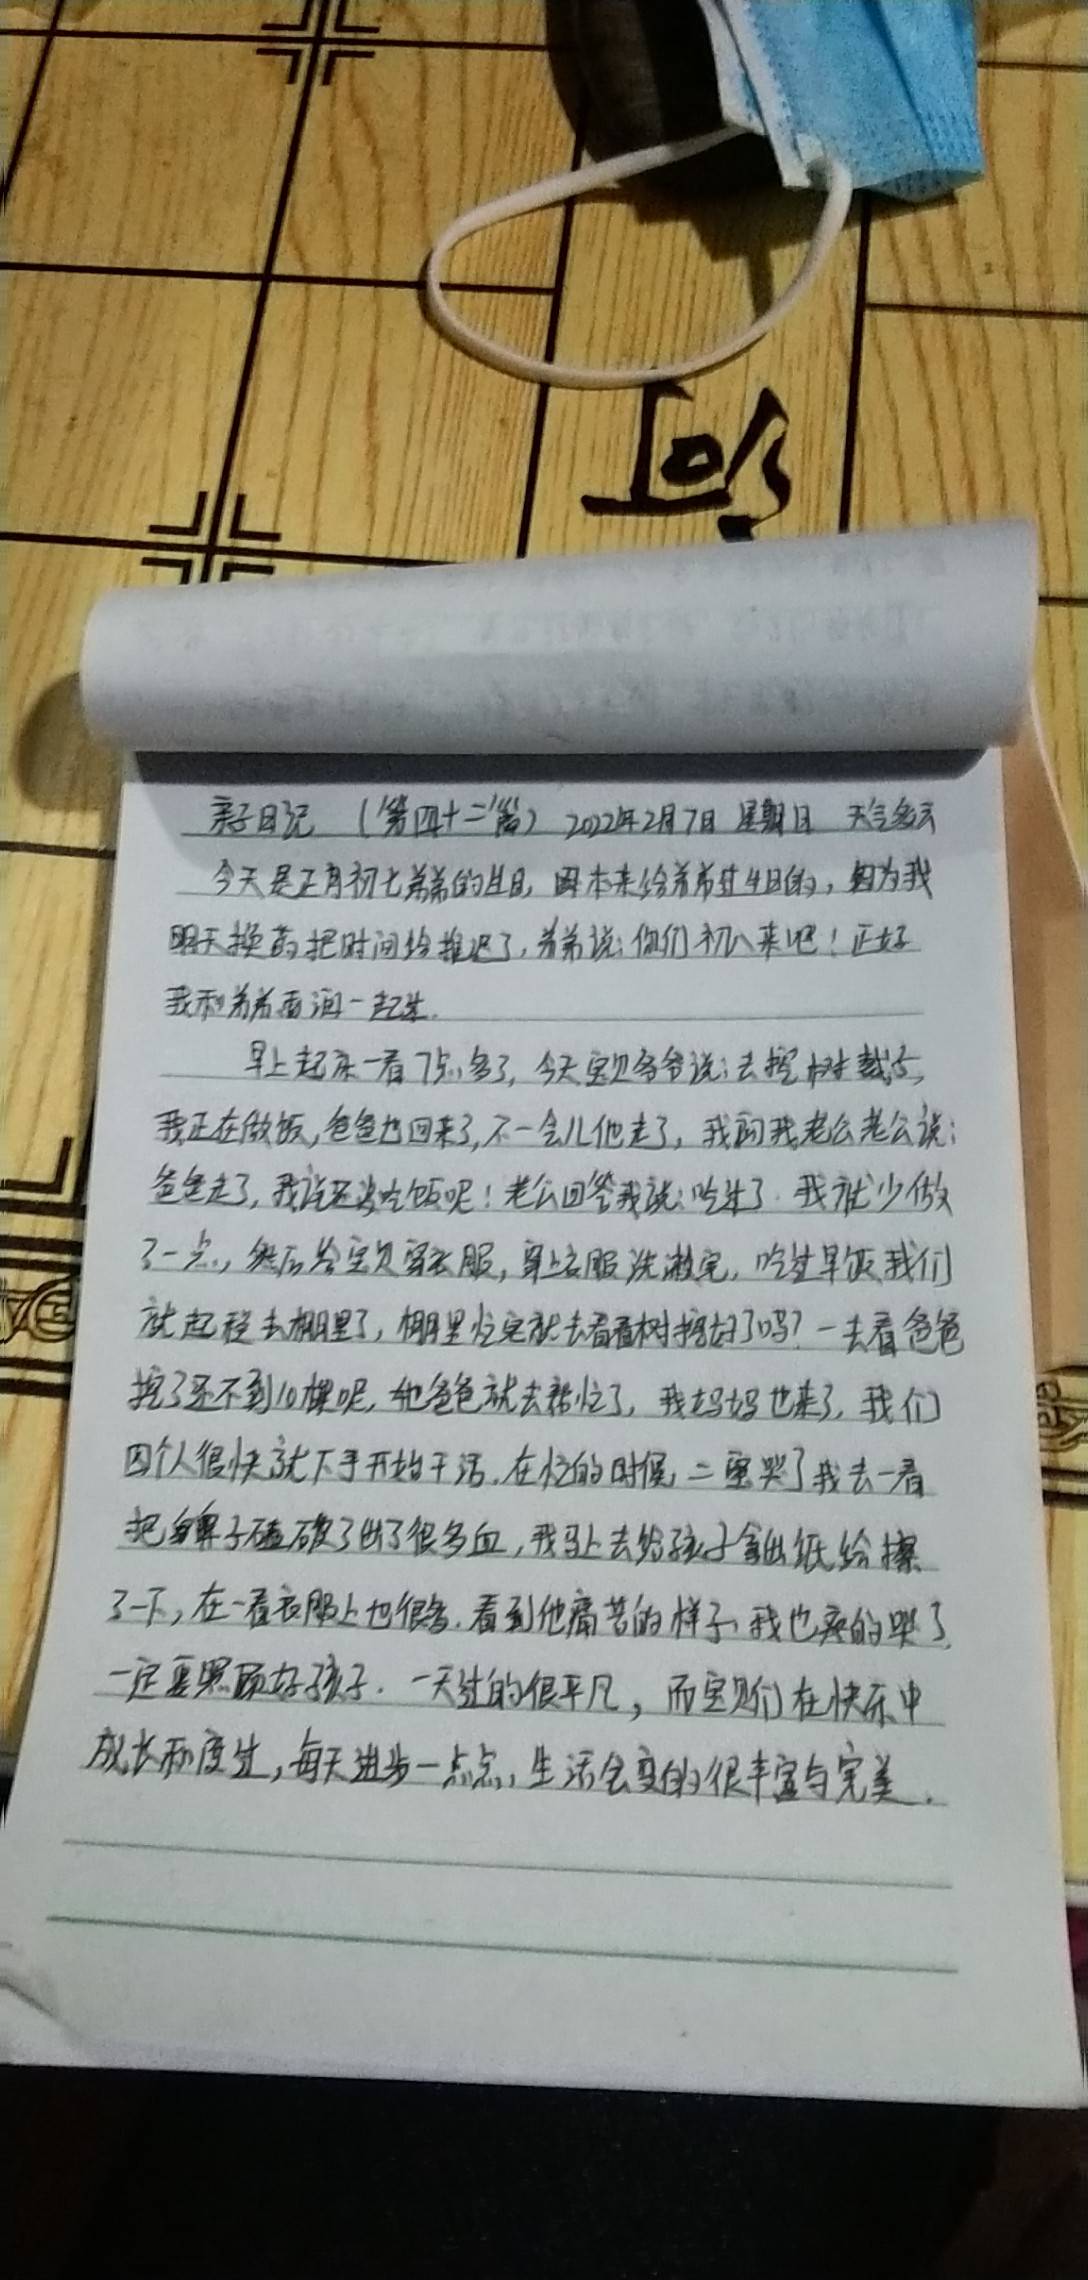 亲子日记 (第四十二篇) 2022年2月7日 星期日 天气多云
今天是正月初七弟弟的生日, 本来给弟弟过生日的, 因为我
明天换药把时间给推迟了, 弟弟说: 你们初八来吧! 正好
我和弟弟看涧一起生.
早上起床一看7点多了, 今天宝贝爷爷说: 去挖树栽去,
我正在做饭, 爸爸也回来了, 不一会儿他走了, 我问我老公老公说:
爸爸走了, 我说还没吃饭呢! 老公回答我说: 吃过了. 我就少做
了一点, 然后给宝贝穿衣服, 穿上衣服洗漱完, 吃过早饭我们
就起程去棚里了, 棚里忙完就去看看树挖好了吗? 一去看爸爸
挖了还不到10棵呢, 他爸爸就去帮忙了, 我妈妈也来了, 我们
四个人很快就下手开始干活. 在忙的时候, 二宝哭了我去一看
把鼻子磕破了出了很多血, 我马上去给孩子拿出纸给擦
了一下, 在一看衣服上也很多. 看到他痛苦的样子, 我也疼的哭了.
一定要照顾好孩子. 一天过的很平凡, 而宝贝们在快乐中
成长和度过, 每天进步一点点, 生活会变的很丰富与完美.